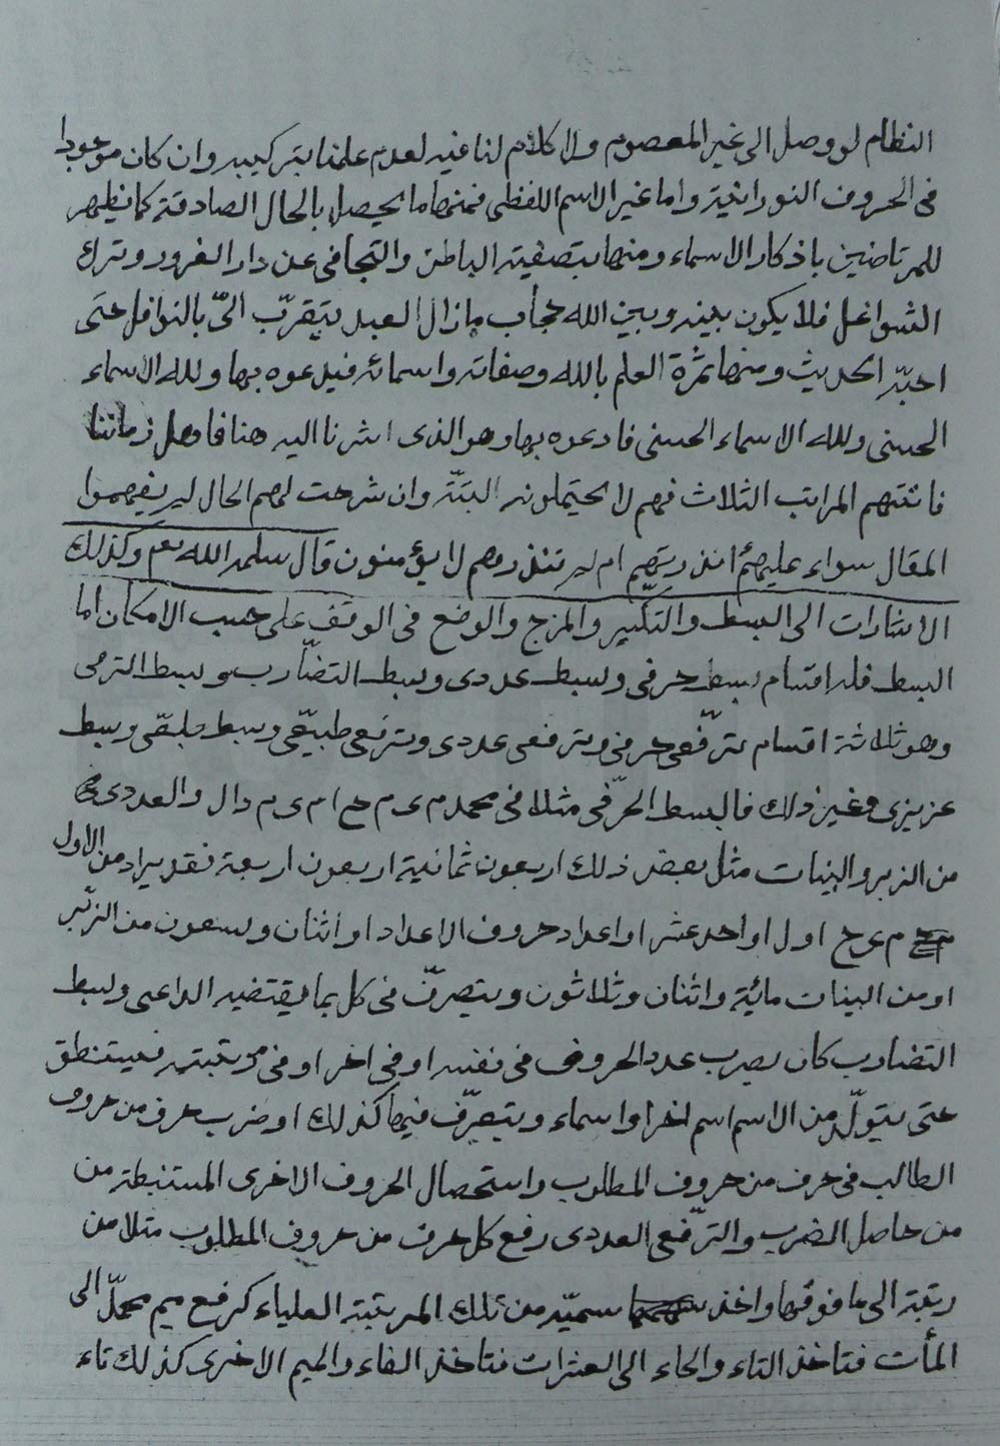 النظام لو وصل الى غير المعصوم ولا كلام لنا فيه لعدم علمنا بتركيبه وان كان موجودا
فى الحروف النورانية واما غير الاسم اللفظى فمنها ما يحصل بالحال الصادقة كما يظهر
للمرتاضين باذكار الاسماء ومنها بتصفية الباطن والتجافى عن دار الغرور وترك
الشواغل فلا يكون بينه وبين الله حجاب مازال العبد يتقرّب الىّ بالنوافل حتى
احبّه الحديث ومنها ثمرة العلم بالله وصفاته واسمائه فيدعوه بها ولله الاسماء
الحسنى ولله الاسماء الحسنى فادعوه بها وهو الذى اشرنا اليه هنا فاهل زماننا
فاتتهم المراتب الثلاث فهم لا يحتملونه البتّة وان شرحت لهم الحال لم يفهموا
المقال سواء عليهم ءانذرتهم ام لم تنذرهم لا يؤمنون قال سلمه الله تعالى وكذلك
الاشارات الى البسط والتكسير والمزج والوضع فى الوفق على حسب الامكان اما
البسط فله اقسام بسط حرفى وبسط عددى وبسط التضارب وبسط الترفى
وهو ثلاثة اقسام ترفّعى حرفى وترفعى عددى وترفعى طبيعى وبسط وبسط
عزيزى وغير ذلك فالبسط الحرفى مثلا فى محمد م ى م ح ا م ى م دال والعددى
من الزبر والبينات مثل بعض ذلك اربعون ثمانية اربعون اربعة فقد يراد من الاول
م ى ح اول او احد عشر او اعداد حروف الاعداد او اثنان وتسعون من الزّبر
او من البينات مائية واثنان وثلاثون ويتصرّف فى كل بما يقتضيه الداعى وبسط
التضارب كان يضرب عدد الحروف فى نفسه او فى اخر او فى مرتبته فيستنطق
حتى يتولّد من الاسم اسم اخر او اسماء ويتصرّف فيها كذلك او ضرب حرف من حروف
الطالب فى حرف من حروف المطلوب واستحصال الحروف الاخرى المستنبطة من
من حاصل الضرب والترّفعى العددى رفع كل حرف من حروف المطلوب مثلا من
رتبة الى ما فوقها واخذ سميّه من تلك المرتبة العلياء كرفع ميم محمّد الى
المأت فتاخذ التاء والحاء الى العشرات فتاخذ الفاء والميم الاخرى كذلك تاء